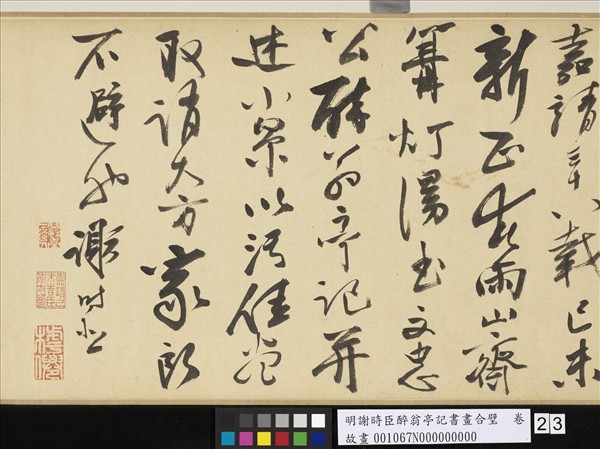 嘉靖三十八載己未
新正春雨山齋
篝灯漫书文忠
公醉翁亭記并
述小景以污佳卷
取誚大方家所
不避也謝時臣
明謝時臣醉翁亭記書畫合璧 卷
故畫 001067N000000000
23